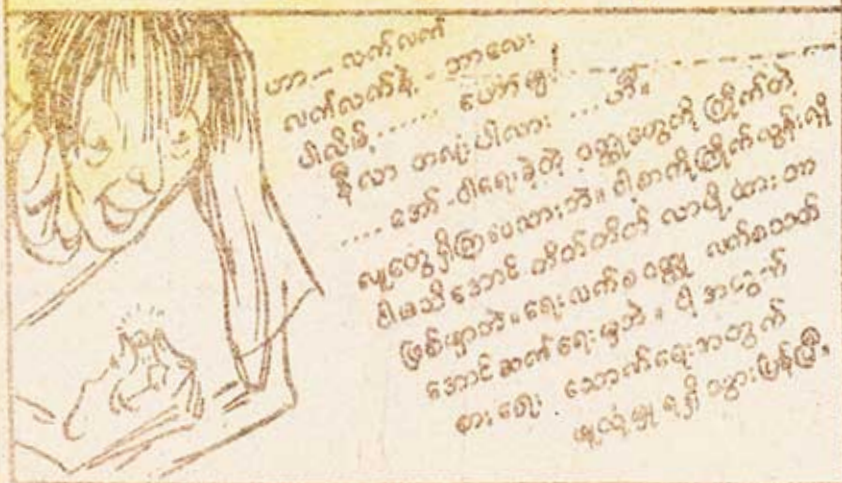 ဟာ — လက်လက်
လက်လက်နဲ့ - ဘာလေး
ပါလိမ့် ...... ဟော်ဗျ!
နီလာ တလုံးပါလား ... ဟီး
.... အော် - ငါရေးခဲ့တဲ့ ဝတ္ထုတွေကို ကြိုက်တဲ့
လူတွေရှိကြပေသားဘဲ။ ငါ့စာကိုကြိုက်လွန်းလို့
ငါမသိအောင် တိတ်တိတ် လာပို့ထားတာ
ဖြစ်မှာဘဲ။ ရေးလက်စ ဝတ္ထု လက်စသတ်
အောင်ဆက်ရေးမှဘဲ။ ငါ့အတွက်
စားရေး သောက်ရေးအတွက်
ဖူလုံမျှ ရရှိသွားပြန်ပြီ။